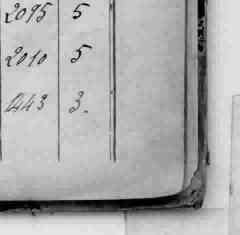 2095 5
2010 5
443 3.